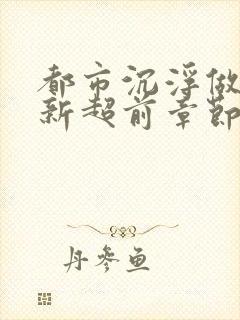 都市沉浮做
新超前章节
丹参鱼